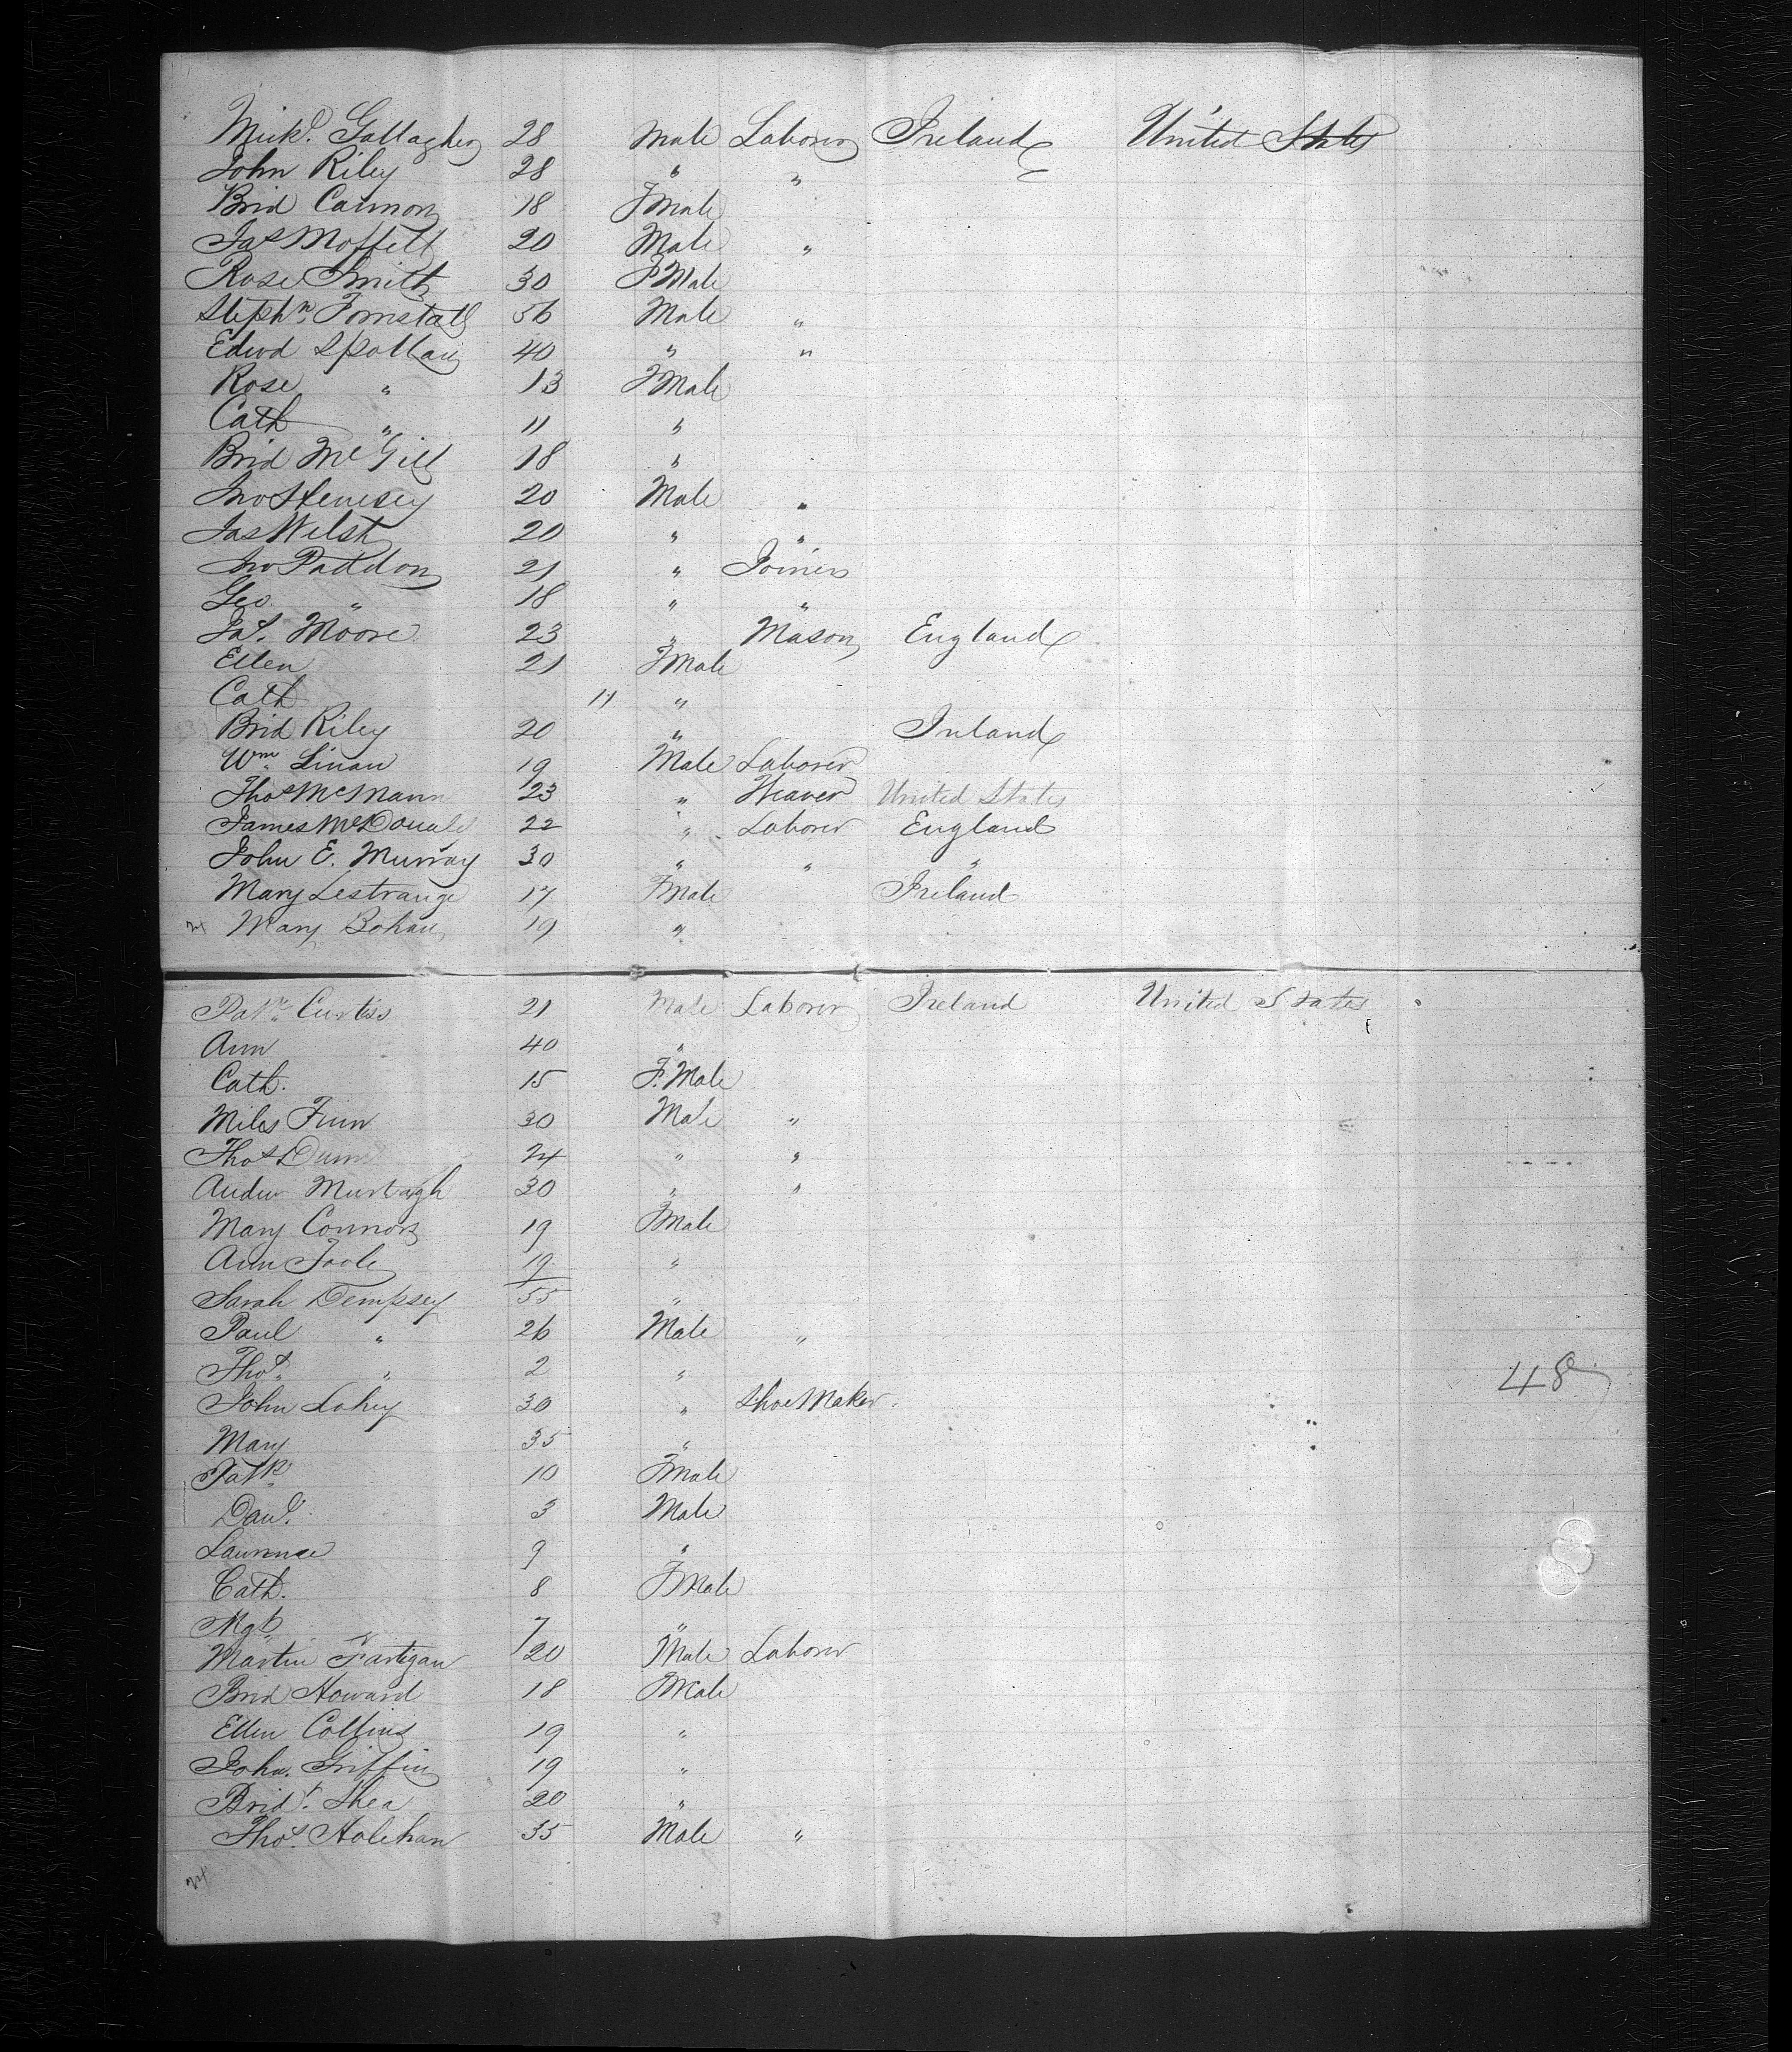 Mich^l. Gallagher 28 Male Laborer Ireland United States
John Riley 28 " "
Brid Cannon 18 FMale
Ja^s Moffett 20 Male "
Rose Smith 30 FMale
Steph^n. Fornstall 56 Male "
Edwd Spollan 40 " "
Rose " 13 FMale
Cath " 11 "
Brid McGill 18 "
Jno Henesey 20 Male "
Jas Welsh 20 " "
Jno Paddon 21 " Joiner
Geo " 18 " "
Ja^s. Moore 23 " Mason England
Ellen 21 FMale
Cath 11 "
Brid Riley 20 " Ireland
W^m. Linan 19 Male Laborer
Tho^s McMann 23 " Weaver United States
James McDonald 22 " Laborer England
John E. Murray 30 " " "
Mary Lestrange 17 FMale Ireland
24 Mary Bohan 19 "
Pat^k. Curtiss 21 Male Laborer Ireland United States
Ann 40 "
Cath. 15 F.Male
Miles Finn 30 Male "
Tho^s Dunn 24 " "
Andw Murtagh 30 " "
Mary Connors 19 FMale
Ann Toole 19 "
Sarah Dempsey 55 "
Paul " 26 Male "
Tho^s. " 2 "
48
John Lahey 30 " Shoe Maker
Mary 35 "
Pat^k. 10 FMale
Dan^l. 3 Male
Lawrence 9 "
Cath. 8 FMale
Mgt 7 "
Martin Fartigan 20 Male Laborer
Brid Howard 18 FMale
Ellen Collins 19 "
John. Griffin 19 "
Brid^t. Shea 20 "
Tho^s. Holehan 35 Male "
24